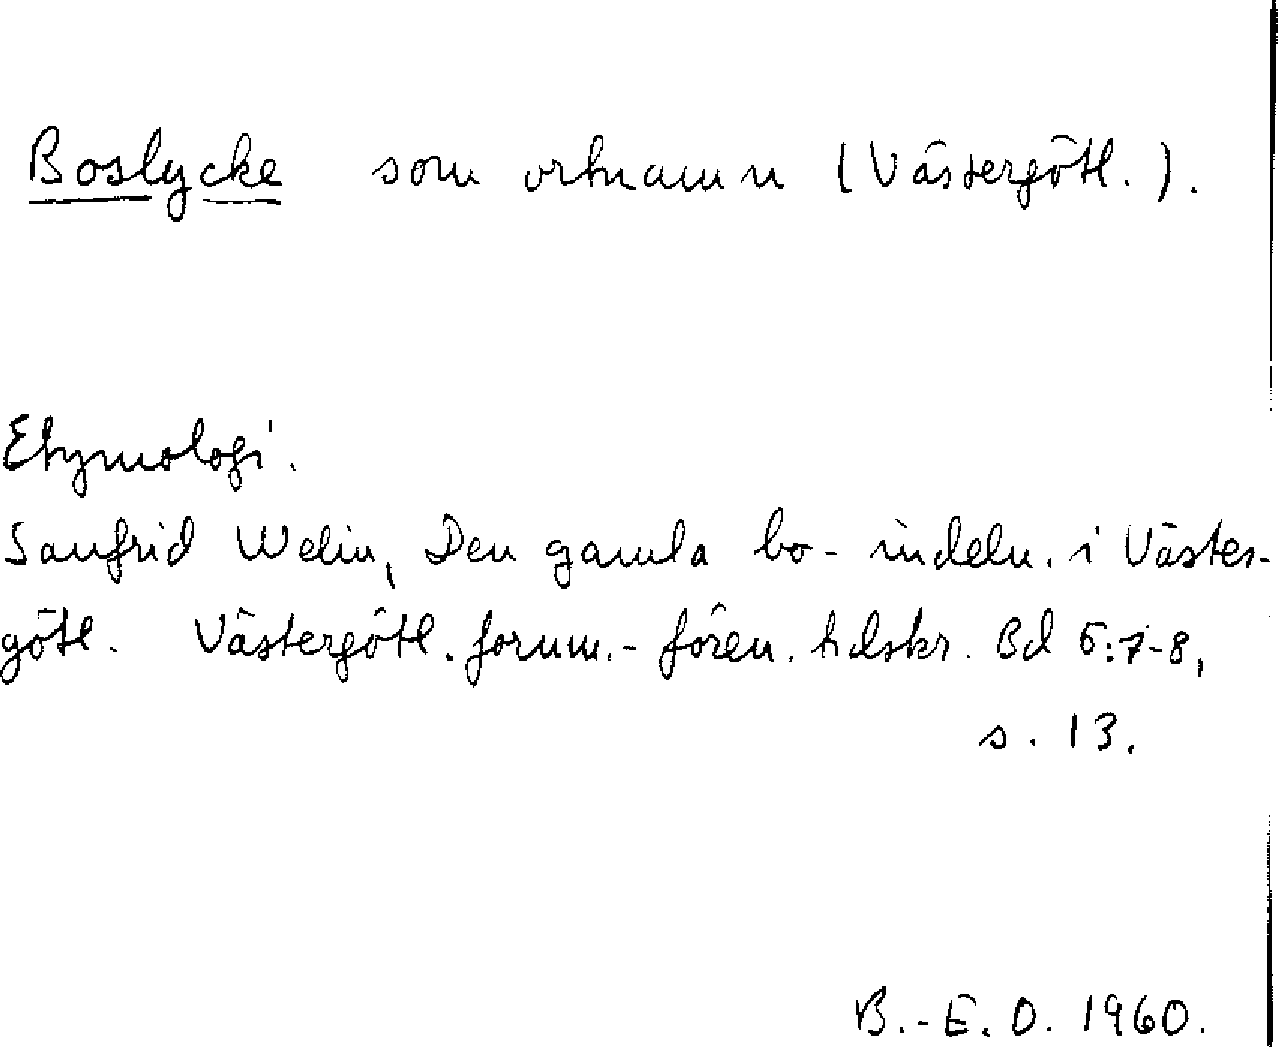 Boslycke som ortnamn (Västergötl.).
Etymologi.
Sanfrid Welin, Den gamla bo-indeln. i Väster-
götl. Västergötl. fornm.-fören. tidskr. Bd 5:7-8,
s. 13.
B.-E. O. 1960.